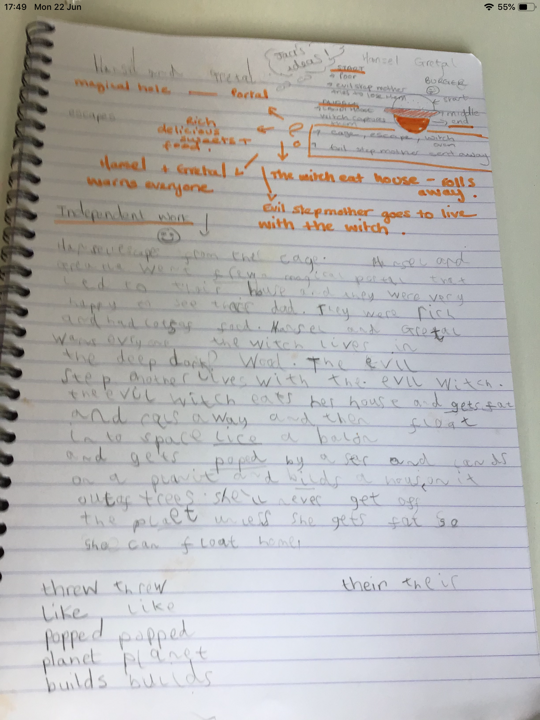 17:49 Mon 22 Jun
55%
Hansel and Gretal
Hansel Gretal
START
poor
BURGER
magical hole — Portal
start
middle
end
escapes
Rich
delicious
sweets +
food.
cage, escape, witch
oven
evil stepmother went away
Hansel + Gretal
warns everyone
The witch eat house - rolls
away.
Evil stepmother goes to live
with the witch.
Independent work
escape from the cage. Hansel and
went magical portal that
led to their house and they were very
happy to see their dad. They were rich
and had food. Hansel and Gretal
warns the witch lives in
the deep dark Wood. The evil
step mother lives with the evil witch.
the evil witch eats her house and gets fat
and rols away and then float
in to space lice a baloon
and gets poped by a and lands
on a planit and bilds a on it
out of trees. she'll never get off
the planet unless she gets fat so
she can float home.
threw threw
their their
like like
popped popped
planet planet
builds builds